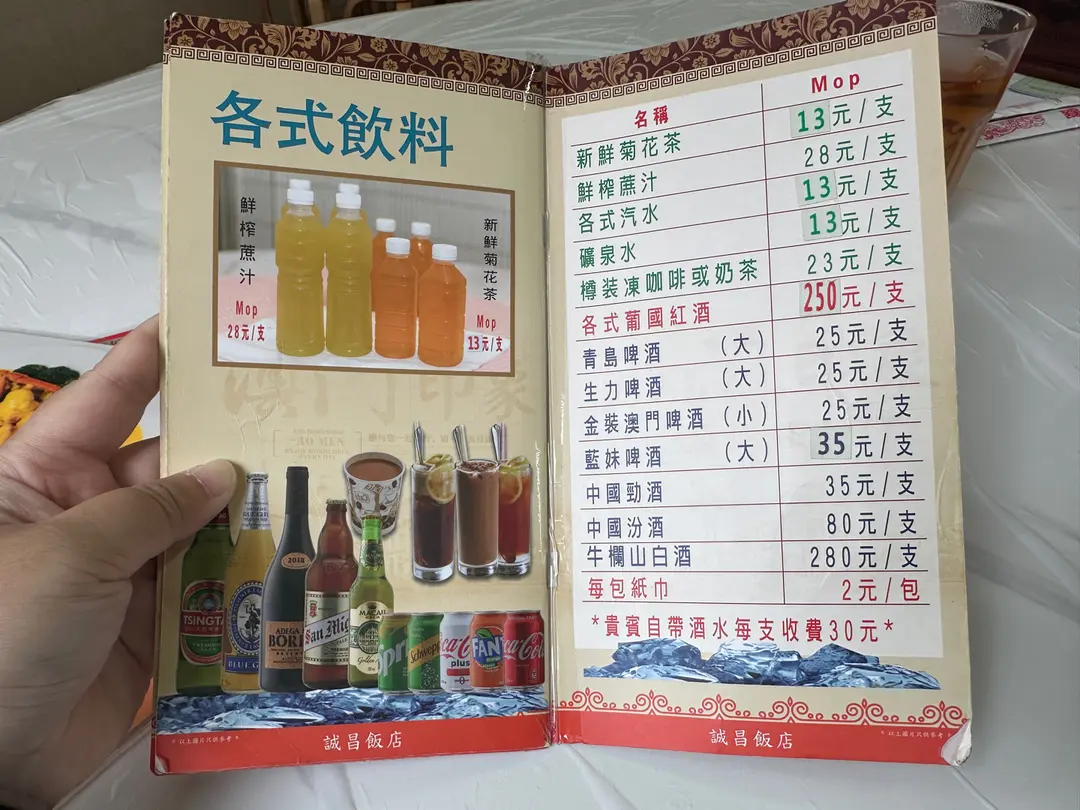 各式飲料
鮮榨蔗汁
Mop
28元/支
新鮮菊花茶
Mop
13元/支
澳門印象
AO MEN
TSINGTAO
BLUE G
2018
ADEGA
BOR
San Mig
MACAU
Golden
Spri
Schwepp
Coca-C
plus
FANT
Coca-Col
*以上圖片只供參考*
誠昌飯店
名稱 Mop
新鮮菊花茶 13元/支
鮮榨蔗汁 28元/支
各式汽水 13元/支
礦泉水 13元/支
樽裝凍咖啡或奶茶 23元/支
各式葡國紅酒 250元/支
青島啤酒（大） 25元/支
生力啤酒（大） 25元/支
金裝澳門啤酒（小） 25元/支
藍妹啤酒（大） 35元/支
中國勁酒 35元/支
中國汾酒 80元/支
牛欄山白酒 280元/支
每包紙巾 2元/包
*貴賓自帶酒水每支收費30元*
誠昌飯店
*以上圖片只供參考*